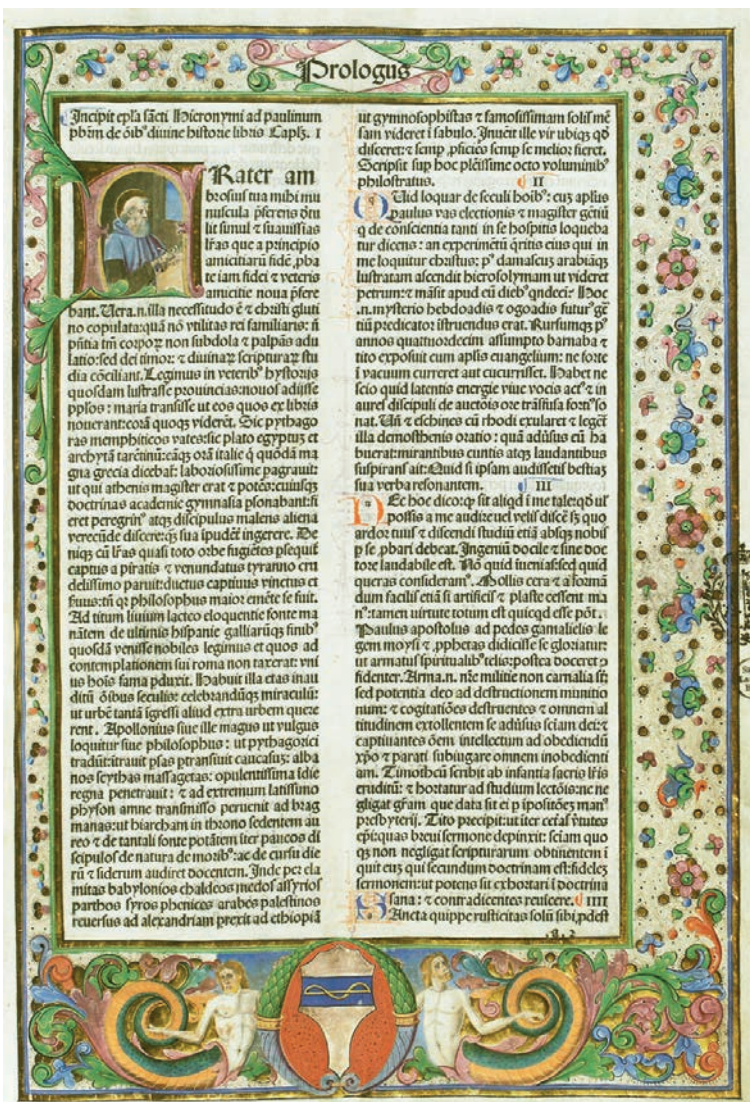 Prologus
Incipit epła sācti Hieronymi ad paulinum
pbẽm de oĩbꝰ diuine historie libris Capłz. I
FRater am
brosius tua mihi mu
nuscula ꝑferens dtu
lit simul ⁊ suauissias
lr̃as que a principio
amicitiarũ fidẽ ꝓba
te iam fidei ⁊ veteris
amicitie noua ꝑfere
bant. Uera.n.illa necessitudo ẽ ⁊ christi gluti
no copulata: quã nõ vtilitas rei familiaris: ñ
pñtia tm̃ corpoꝝ non subdola ⁊ palpãs adu
latio: sed dei timor: ⁊ diuinaꝝ scripturaꝝ stu
dia cõciliant. Legimus in veteribꝰ hystorijs
quosdam lustrasse prouincias: nouos adijsse
pplos: maria transisse ut eos quos ex libris
nouerant: corã quoqꝫ viderẽt. Sic pythago
ras memphiticos vates: sic plato egyptũ et
archytã tarētinũ: eãqꝫ orã italie q̃ quõdã ma
gna grecia dicebat̃: laboriosissime pagrauit:
ut qui athenis magister erat ⁊ potẽs: cuiusqꝫ
doctrinas academie gymnasia psonabant: fi
eret peregrinꝰ atqꝫ discipulus malens aliena
verecũde discere: qꝫ sua ĩpudẽt̃ ingerere. De
niqꝫ cũ lr̃as quasi toto orbe fugiẽtes ꝓsequit̃
captus a piratis ⁊ venundatus tyranno cru
delissimo paruit: ductus captiuus vinctus et
ẜuus: tñ qꝛ philosophus maior emẽte se fuit.
Ad titum liuium lacteo eloquentie fonte ma
nãtem de ultimis hispanie galliarũqꝫ finibꝰ
quosdã venisse nobiles legimus et quos ad
contemplationem sui roma non taxerat: vni
us hoĩs fama ꝑduxit. Habuit illa etas inau
ditũ oĩbus seculis: celebrandũqꝫ miraculũ:
ut urbẽ tantã ĩgressi aliud extra urbem quere
rent. Apollonius siue ille magus ut vulgus
loquitur siue philosophus: ut pythagorici
tradũt: ĩtrauit psas ꝑtransiuit caucasũ: alba
nos scythas massagetas: opulentissima ĩdie
regna penetrauit: ⁊ ad extremum latissimo
physon amne transmisso peruenit ad brag
manas: ut hiarcham in throno sedentem au
reo ⁊ de tantali fonte potãtem iter paucos di
scipulos de natura de moribꝰ: ac de cursu die
rũ ⁊ siderum audiret docentem. Inde per ela
mitas babylonios chaldeos medos assyrios
parthos syros phenices arabes palestinos
reuersus ad alexandriam prexit ad ethiopiã
ut gymnosophistas ⁊ famosissimam solis mẽ
sam videret ĩ sabulo. Inuẽit ille vir ubiqꝫ qð
disceret: ⁊ semꝑ ꝓficiẽs semꝑ se melior fieret.
Scripsit suꝑ hoc plẽissime octo voluminibꝰ
philostratus. II
QUid loquar de seculi hoĩbꝰ: cuꝫ aplus
paulus vas electionis ⁊ magister gẽtiũ
q̃ de conscientia tanti in se hospitis loqueba
tur dicens: an experimẽtũ q̃ritis eius qui in
me loquitur christus: pꝰ damascuꝫ arabiãqꝫ
lustratam ascendit hierosolymam ut videret
petrum: ⁊ mãsit apud eũ diebꝰ qndecĩ. Hoc
.n.mysterio hebdoadis ⁊ ogoadis futurꝰ gẽ
tiũ predicator ĩstruendus erat. Rursumqꝫ pꝰ
annos quatuordecim assumpto barnaba ⁊
tito exposuit cum aplis euangelium: ne forte
ĩ vacuum curreret aut cucurrisset. Habet ne
scio quid latentis energie viue vocis actꝰ ⁊ in
aures discipuli de auctoĩs ore trãsfusa fortiꝰ so
nat. Uñ ⁊ eschines cũ rhodi exularet ⁊ leget̃
illa demosthenis oratio: quã adũsus eũ ha
buerat: mirantibus cuntis atqꝫ laudantibus
suspirans ait: Quid si ipsam audissetis bestiaꝫ
sua verba resonantem. III
NEc hoc dico: qꝫ sit aliqd ĩ me tale: qð uł
possis a me audire uel velis discẽ: sꝫ quo
ardor tuus ⁊ discendi studiũ etiã absqꝫ nobis
ꝑ se ꝓbari debeat. Ingeniũ docile ⁊ sine doc
tore laudabile est. Nõ quid ĩuenias: sed quid
queras consideramꝰ. Mollis cera ⁊ a formã
dum facilis etiã si artificis ⁊ plaste cessent ma
nꝰ: tamen uirtute totum est quicqd esse põt.
Paulus apostolus ad pedes gamalielis le
gem moysi ⁊ ꝓphetas didicisse se gloriatur:
ut armatus spiritualibꝰ telis: postea doceret ꝯ
fidenter. Arma.n. nr̃e militie non carnalia st̃:
sed potentia deo ad destructionem munitio
num: ⁊ cogitatiões destruentes ⁊ omnem al
titudinem extollentem se adũsus sciam dei: ⁊
captiuantes õem intellectum ad obediendũ
xp̃o ⁊ parati subiugare omnem inobedienti
am. Timotheũ scribit ab infantia sacris lr̃is
eruditũ: ⁊ hortatur ad studium lectõis: ne ne
gligat gr̃am que data sit ei ꝑ ĩpositõeꝫ manꝰ
presbyterij. Tito precipit: ut iter cet̃as ṽtutes
ep̃i: quas breui sermone depinxit: sciam quo
qꝫ non negligat scripturarum obtinentem ĩ
quit euꝫ qui secundum doctrinam est: fideleꝫ
sermonem: ut potens sit exhortari ĩ doctrina
sana: ⁊ contradicentes reuicere. IIII
SAncta quippe rusticitas solũ sibi ꝓdest
.a. 2